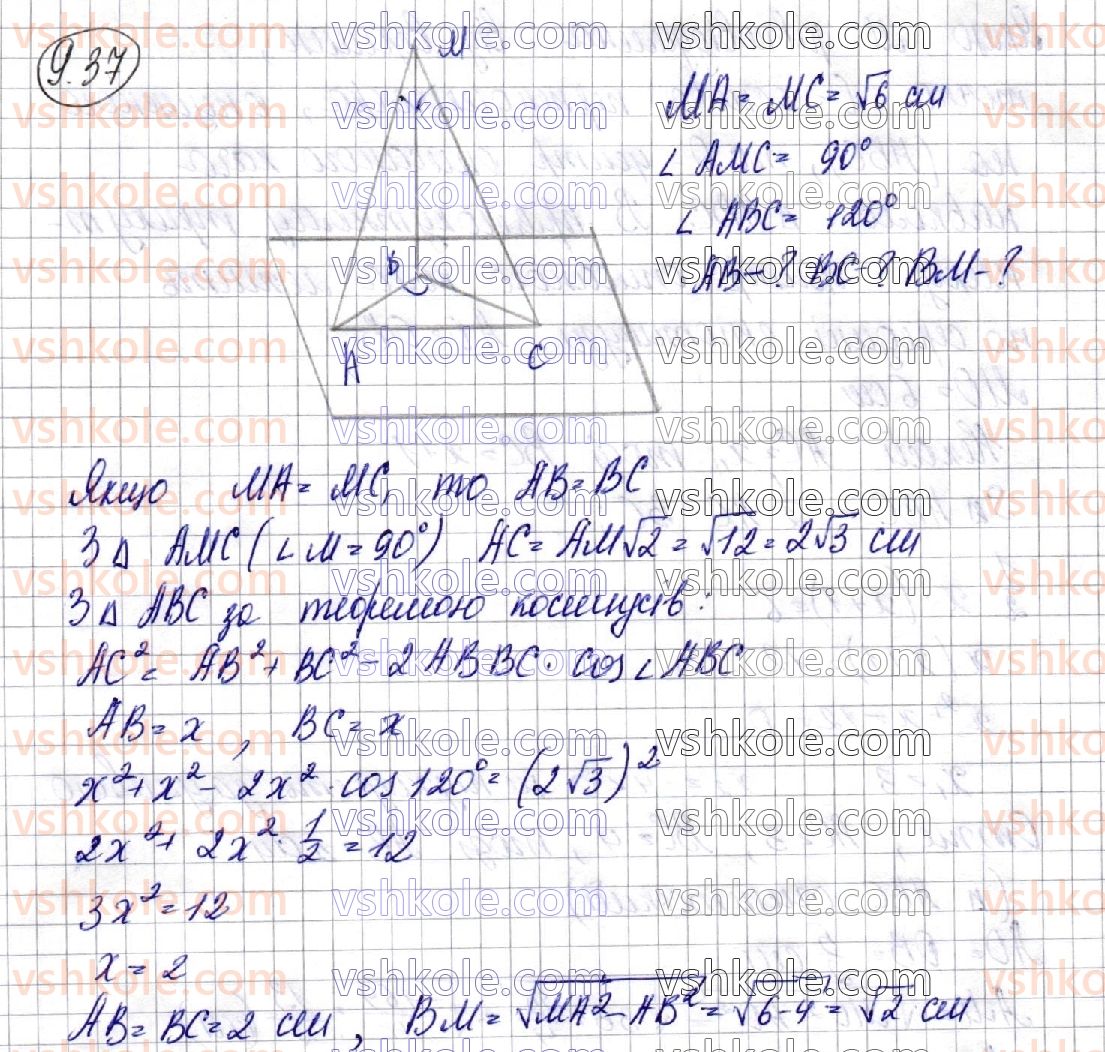 9.37
M
MA = MC = √6 см
∠ AMC = 90°
∠ ABC = 120°
AB - ? BC - ? BM - ?
B
A
C
Якщо MA = MC, то AB = BC
З Δ AMC (∠ M = 90°) AC = AM√2 = √12 = 2√3 см
З Δ ABC за теоремою косинусів:
AC² = AB² + BC² - 2 AB BC · cos ∠ ABC
AB = x, BC = x
x² + x² - 2x² · cos 120° = (2√3)²
2x² + 2x² · 1/2 = 12
3x² = 12
x = 2
AB = BC = 2 см, BM = √MA² - AB² = √6-4 = √2 см
vshkole.com